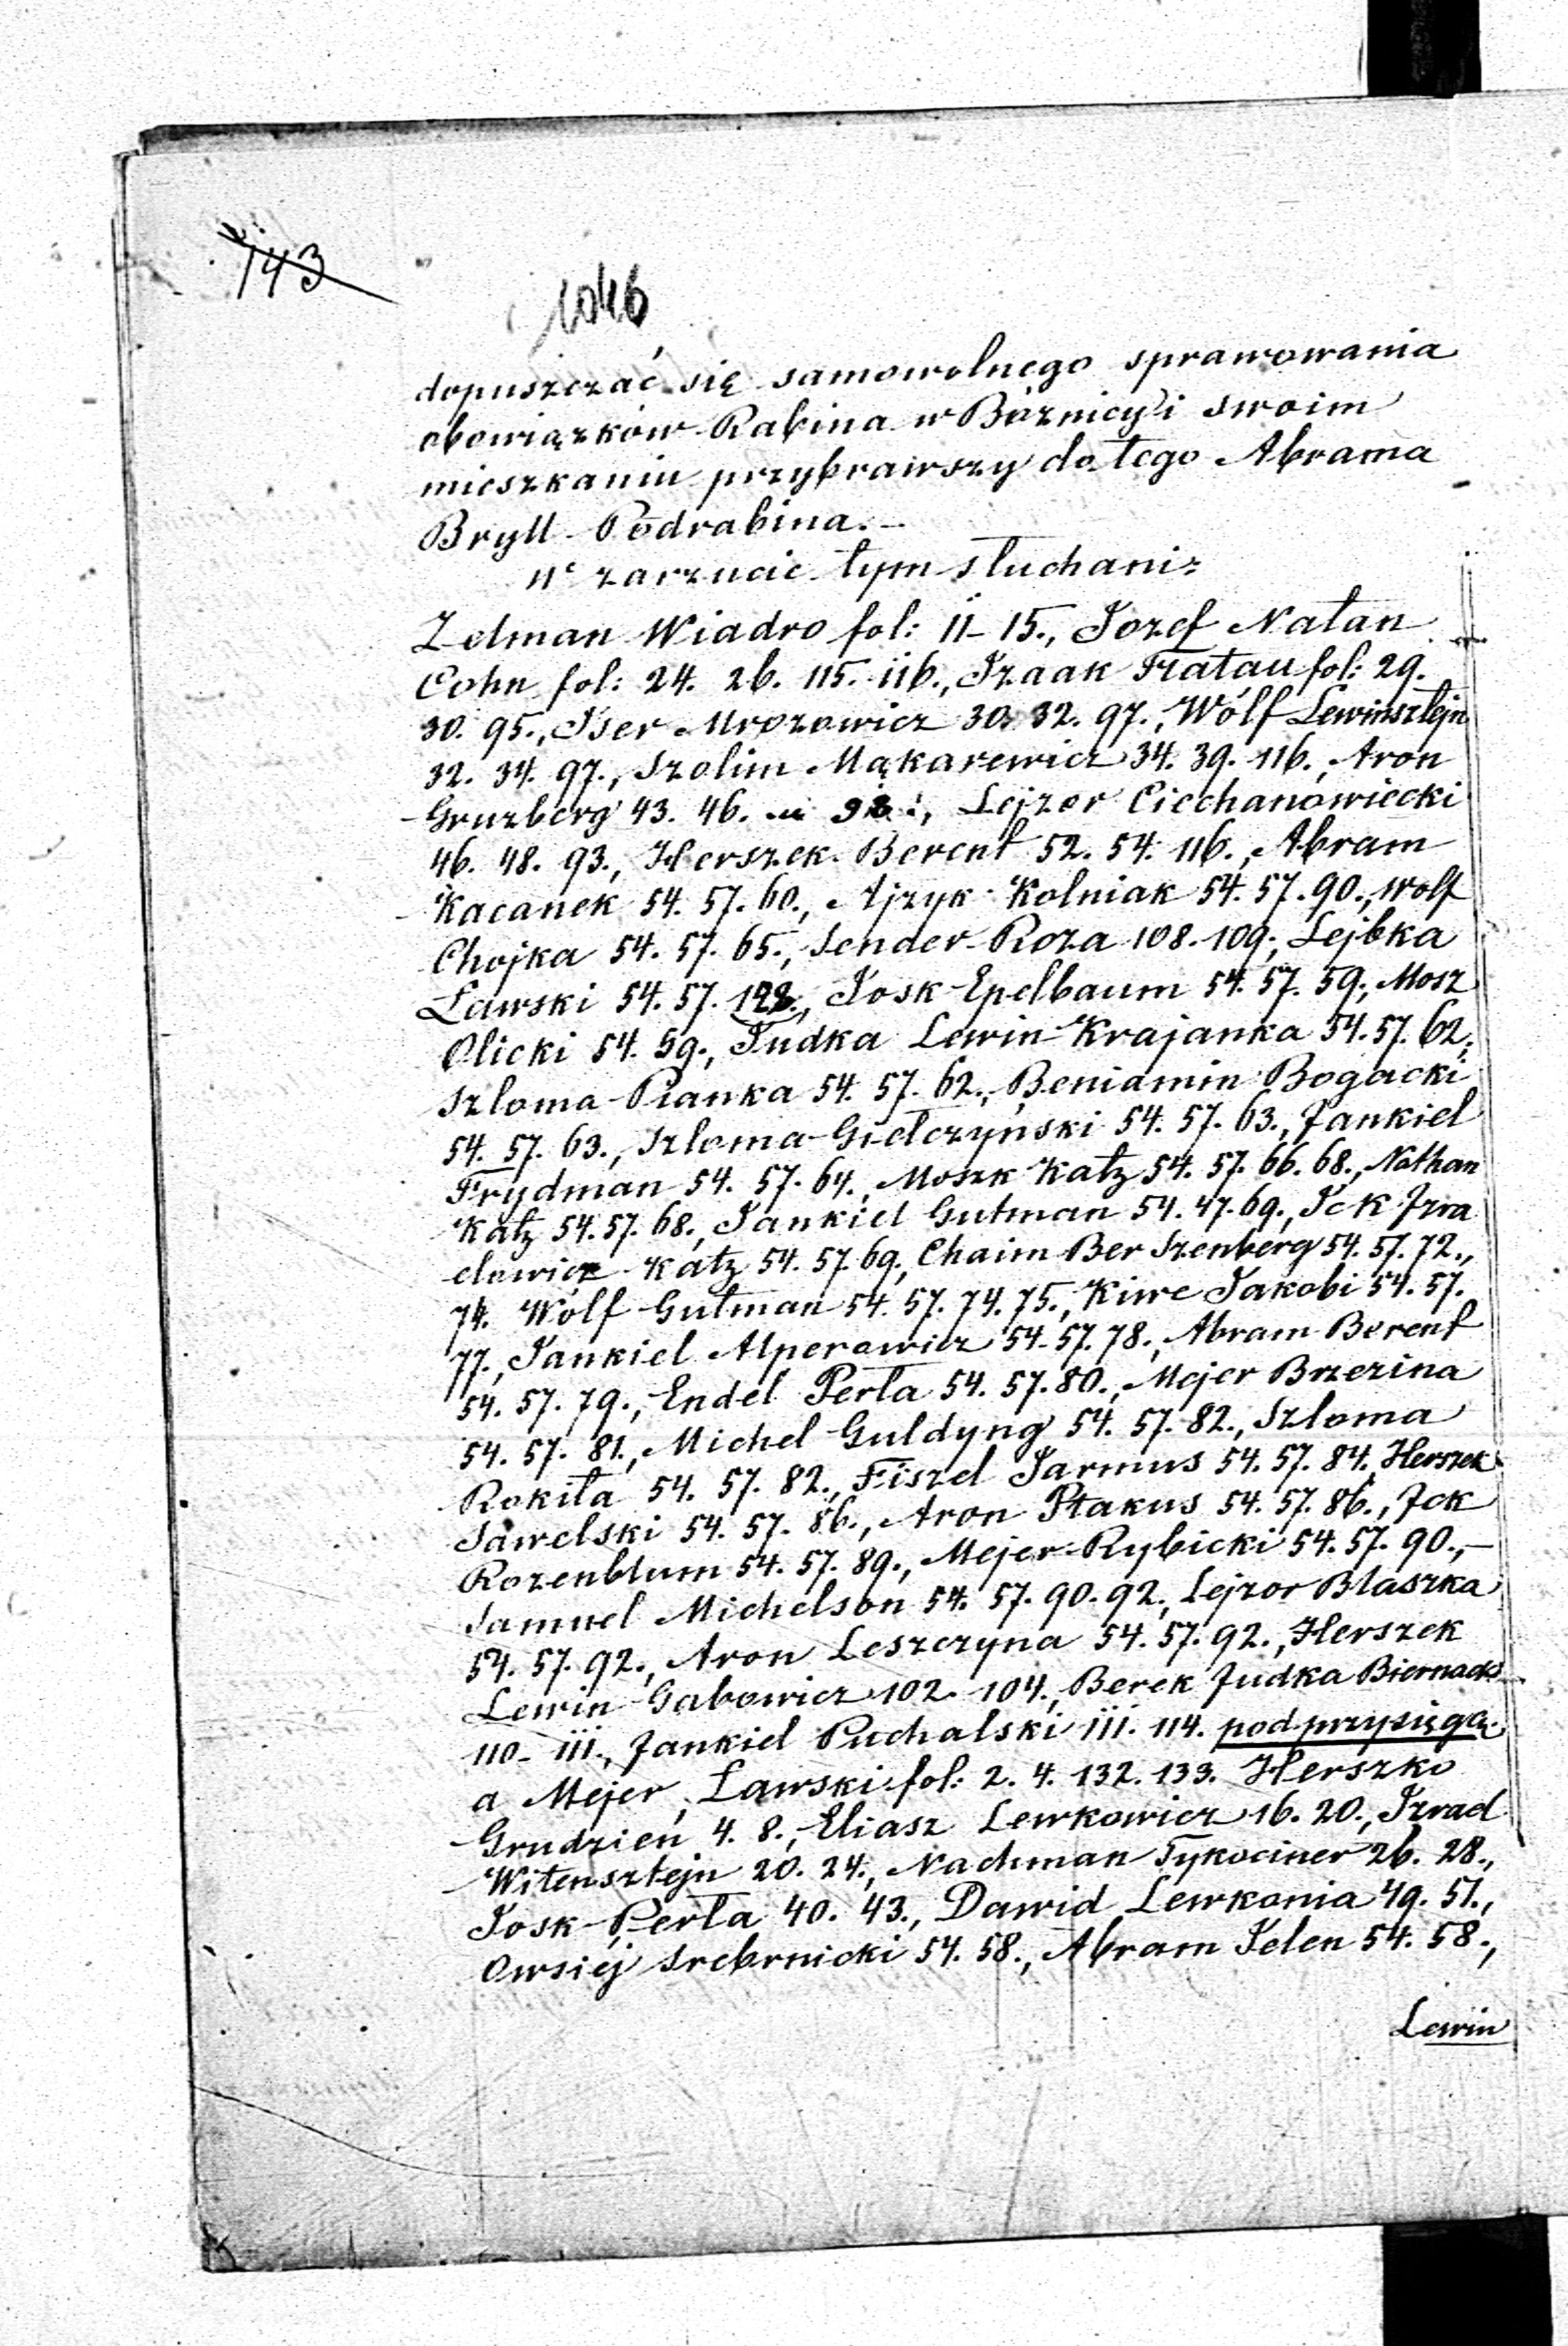 143
1046
dopuszczać się samowolnego sprawowania
obowiązków Rabina w Bóżnicy i swoim
mieszkaniu przybrawszy do tego Abrama
Bryll Podrabina.–
W zarzucie tym słuchani:
Zelman Wiadro fol: 11–15., Jozef Natan
Cohn fol: 24. 26. 115. 116., Izaak Fratau fol: 29.
30. 95., Iser Mrozowicz 30. 32. 97., Wólf Lewinsztejn
32. 34. 97., Szolim Mąkarewicz 34. 39. 116., Aron
Gruzberg 43. 46. 93., Lejzor Ciechanowiecki
46. 48. 93., Herszek Berent 52. 54. 116., Abram
Kacanek 54. 57. 60., Ajzyk Kolniak 54. 57. 90., Wolf
Chojka 54. 57. 65., Sender Roza 108. 109., Lejbka
Ławski 54. 57. 128., Josk Epelbaum 54. 57. 59., Mosz
Olicki 54. 59., Judka Lewin Krajanka 54. 57. 62.,
Szloma Pianka 54. 57. 62., Beniamin Bogacki
54. 57. 63., Szloma Giełczyński 54. 57. 63., Jankiel
Frydman 54. 57. 64., Moszk Katz 54. 57. 66. 68., Nathan
Katz 54. 57. 68., Jankiel Gutman 54. 47. 69., Ick Izra
elowicz Katz 54. 57. 69., Chaim Ber Szenberg 54. 57. 72.,
74. Wolf Gutman 54. 57. 74. 75., Kiwe Jakobi 54. 57.
77., Jankiel Alperowicz 54. 57. 78., Abram Berent
54. 57. 79., Endel Perła 54. 57. 80., Mejer Brzezina
54. 57. 81., Michel Guldyng 54. 57. 82., Szloma
Rokita 54. 57. 82., Fiszel Jarmus 54. 57. 84., Herszek
Sawelski 54. 57. 86., Aron Ptakus 54. 57. 86., Ick
Rozenblum 54. 57. 89., Mejer Rybicki 54. 57. 90.,–
Samuel Michelson 54. 57. 90. 92., Lejzor Blaszka
54. 57. 92., Aron Leszczyna 54. 57. 92., Herszek
Lewin Gabowicz 102. 104., Berek Judka Biernacki
110–111., Jankiel Puchalski 111. 114. pod przysięgą
a Mejer Ławski fol: 2. 4. 132. 133. Herszko
Grudzień 4. 8., Eliasz Lewkowicz 16. 20., Izrael
Witensztejn 20. 24., Nachman Tykociner 26. 28.,
Josk Perła 40. 43., Dawid Lewkonia 49. 51.,
Owsiej Srebrnicki 54. 58., Abram Jelen 54. 58.,
Lewin